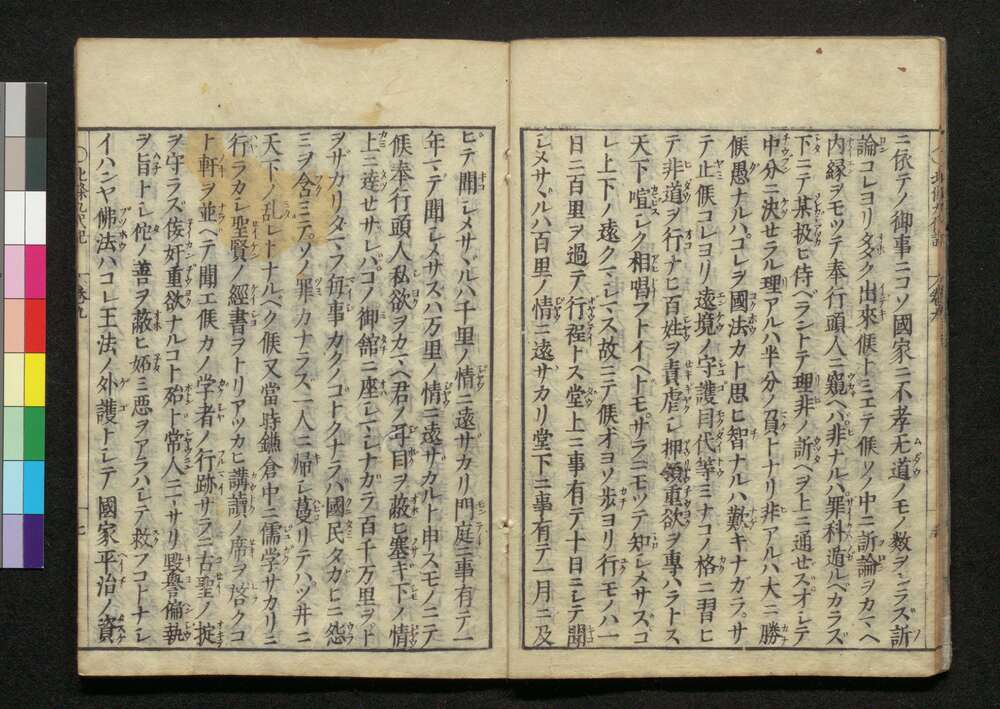 ニ依テノ御事ニコソ國家ニ不孝无道ノモノ数ヲシラズ訴
論コレヨリ多ク出來候ト云エテ候ソノ中ニ訴論ヲカマヘ
内縁ヲモツテ奉行頭人ニ窺ヘバ非ナルハ罪科遁ルベカラズ
下ニテ某扱ヒ侍ベラントテ理非ノ訴ヘヲ上ニ通セズオシテ
中分ニ決せラル理アルハ半分ノ負トナリ非アルハ大ニ勝
候愚ナルハコレヲ國法カト思ヒ智ナルハ歎キナガラサ
テ止候コレヨリ遠境ノ守護目代等ミナコノ格ニ習ヒ
テ非道ヲ行ナヒ百姓ヲ責虐シ押領重欲ヲ專ハラトス
天下喧シク相唱フトイヘトモサラニモツテ知シメサズコ
レ上下ノ遠クマシマス故ニテ候オヨソ歩ヨリ行モノハ一
日ニ百里ヲ過テ行程トス堂上ニ事有テ十日ニシテ聞
シメサヾルハ百里ノ情ニ遠サカリ堂下ニ事有テ一月ニ及
ヒテ聞シメサヾルハ千里ノ情ニ遠サカリ門庭ニ事有テ一
年マテ聞シメサスハ万里ノ情ニ遠サカルト申スモノニテ
候奉行頭人私欲ヲカマヘ君ノ耳目ヲ蔽ヒ塞キ下ノ情
上ニ達せサレバコノ御舘ニ座シマシナガラ百千万里ヲト
ヲサカリタマフ毎事カクノコトクナラバ國民タガヒニ怨
ミヲ含ミテソノ罪カナラズ一人ニ帰シ蔓リテハツ井ニ
天下ノ乱レトナルベク候又當時鎌倉中ニ儒学サカリニ
行ラカシ聖賢ノ經書ヲトリアツカヒ講讀ノ席ヲ啓クコ
ト軒ヲ並ヘテ聞エ候カノ学者ノ行跡サラニ古聖ノ掟
ヲ守ラズ佞奸重欲ナルコト殆ト常人ニマサリ毀譽偏執
ヲ旨トシ佗ノ善ヲ蔽ヒ妬ミ惡ヲアラハシテ救フコトナシ
イハンヤ佛法ハコレ王法ノ外護トシテ國家平治ノ資